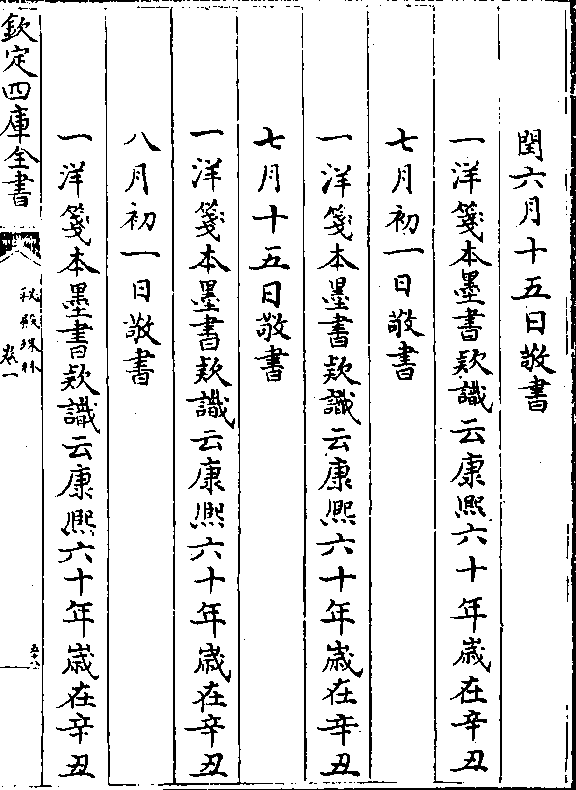 閏六月十五日敬書
一洋箋本墨書款識云康熙六十年歲在辛丑
七月初一日敬書
一洋箋本墨書款識云康熙六十年歲在辛丑
七月十五日敬書
一洋箋本墨書款識云康熙六十年歲在辛丑
八月初一日敬書
一洋箋本墨書款識云康熙六十年歲在辛丑
欽定四庫全書
秘殿珠林
卷一